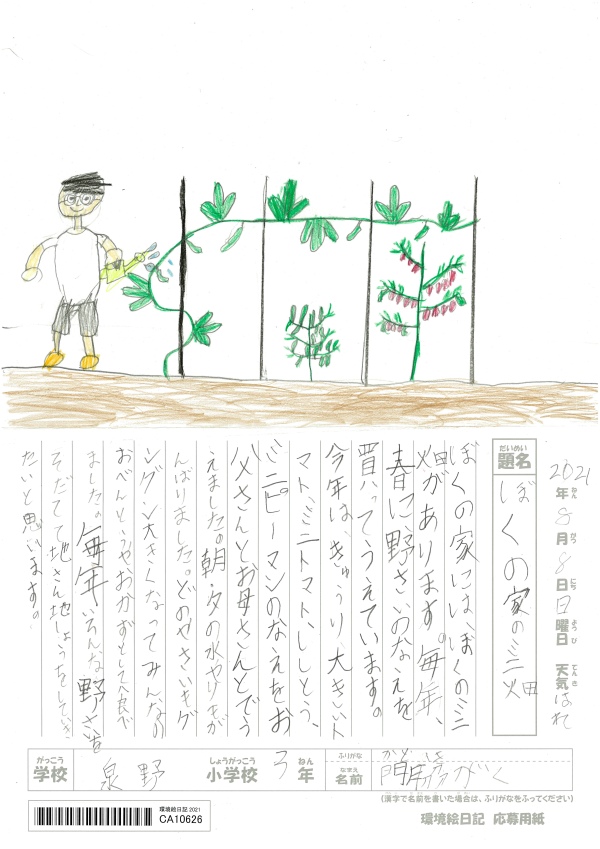 2021年8月8日日曜日 天気はれ
題名 ぼくの家のミニ畑
ぼくの家には、ぼくのミニ
畑があります。毎年、
春に、野さいのなえを
買ってうえています。
今年は、きゅうり大きいト
マト、ミニトマト、ししとう、
ミニピーマンのなえをお
父さんとお母さんとでう
えました。朝・夕の水やりをが
んばりました。どのやさいもグ
ングン大きくなってみんなの
おべんとうや、おかずとして食べ
ました。毎年、いろんな野さいを
そだてて地さん地しょうをしていき
たいと思います。
学校 泉野小学校 3年 名前 門脇がく
(漢字で名前を書いた場合は、ふりがなをふってください)
環境絵日記 2021
CA10626
環境絵日記 応募用紙